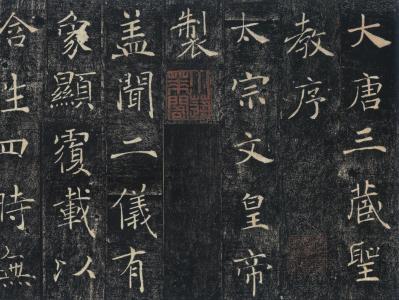 大唐三藏聖
教序
太宗文皇帝
製
盖聞二儀有
象顯覆載以
含生四時無